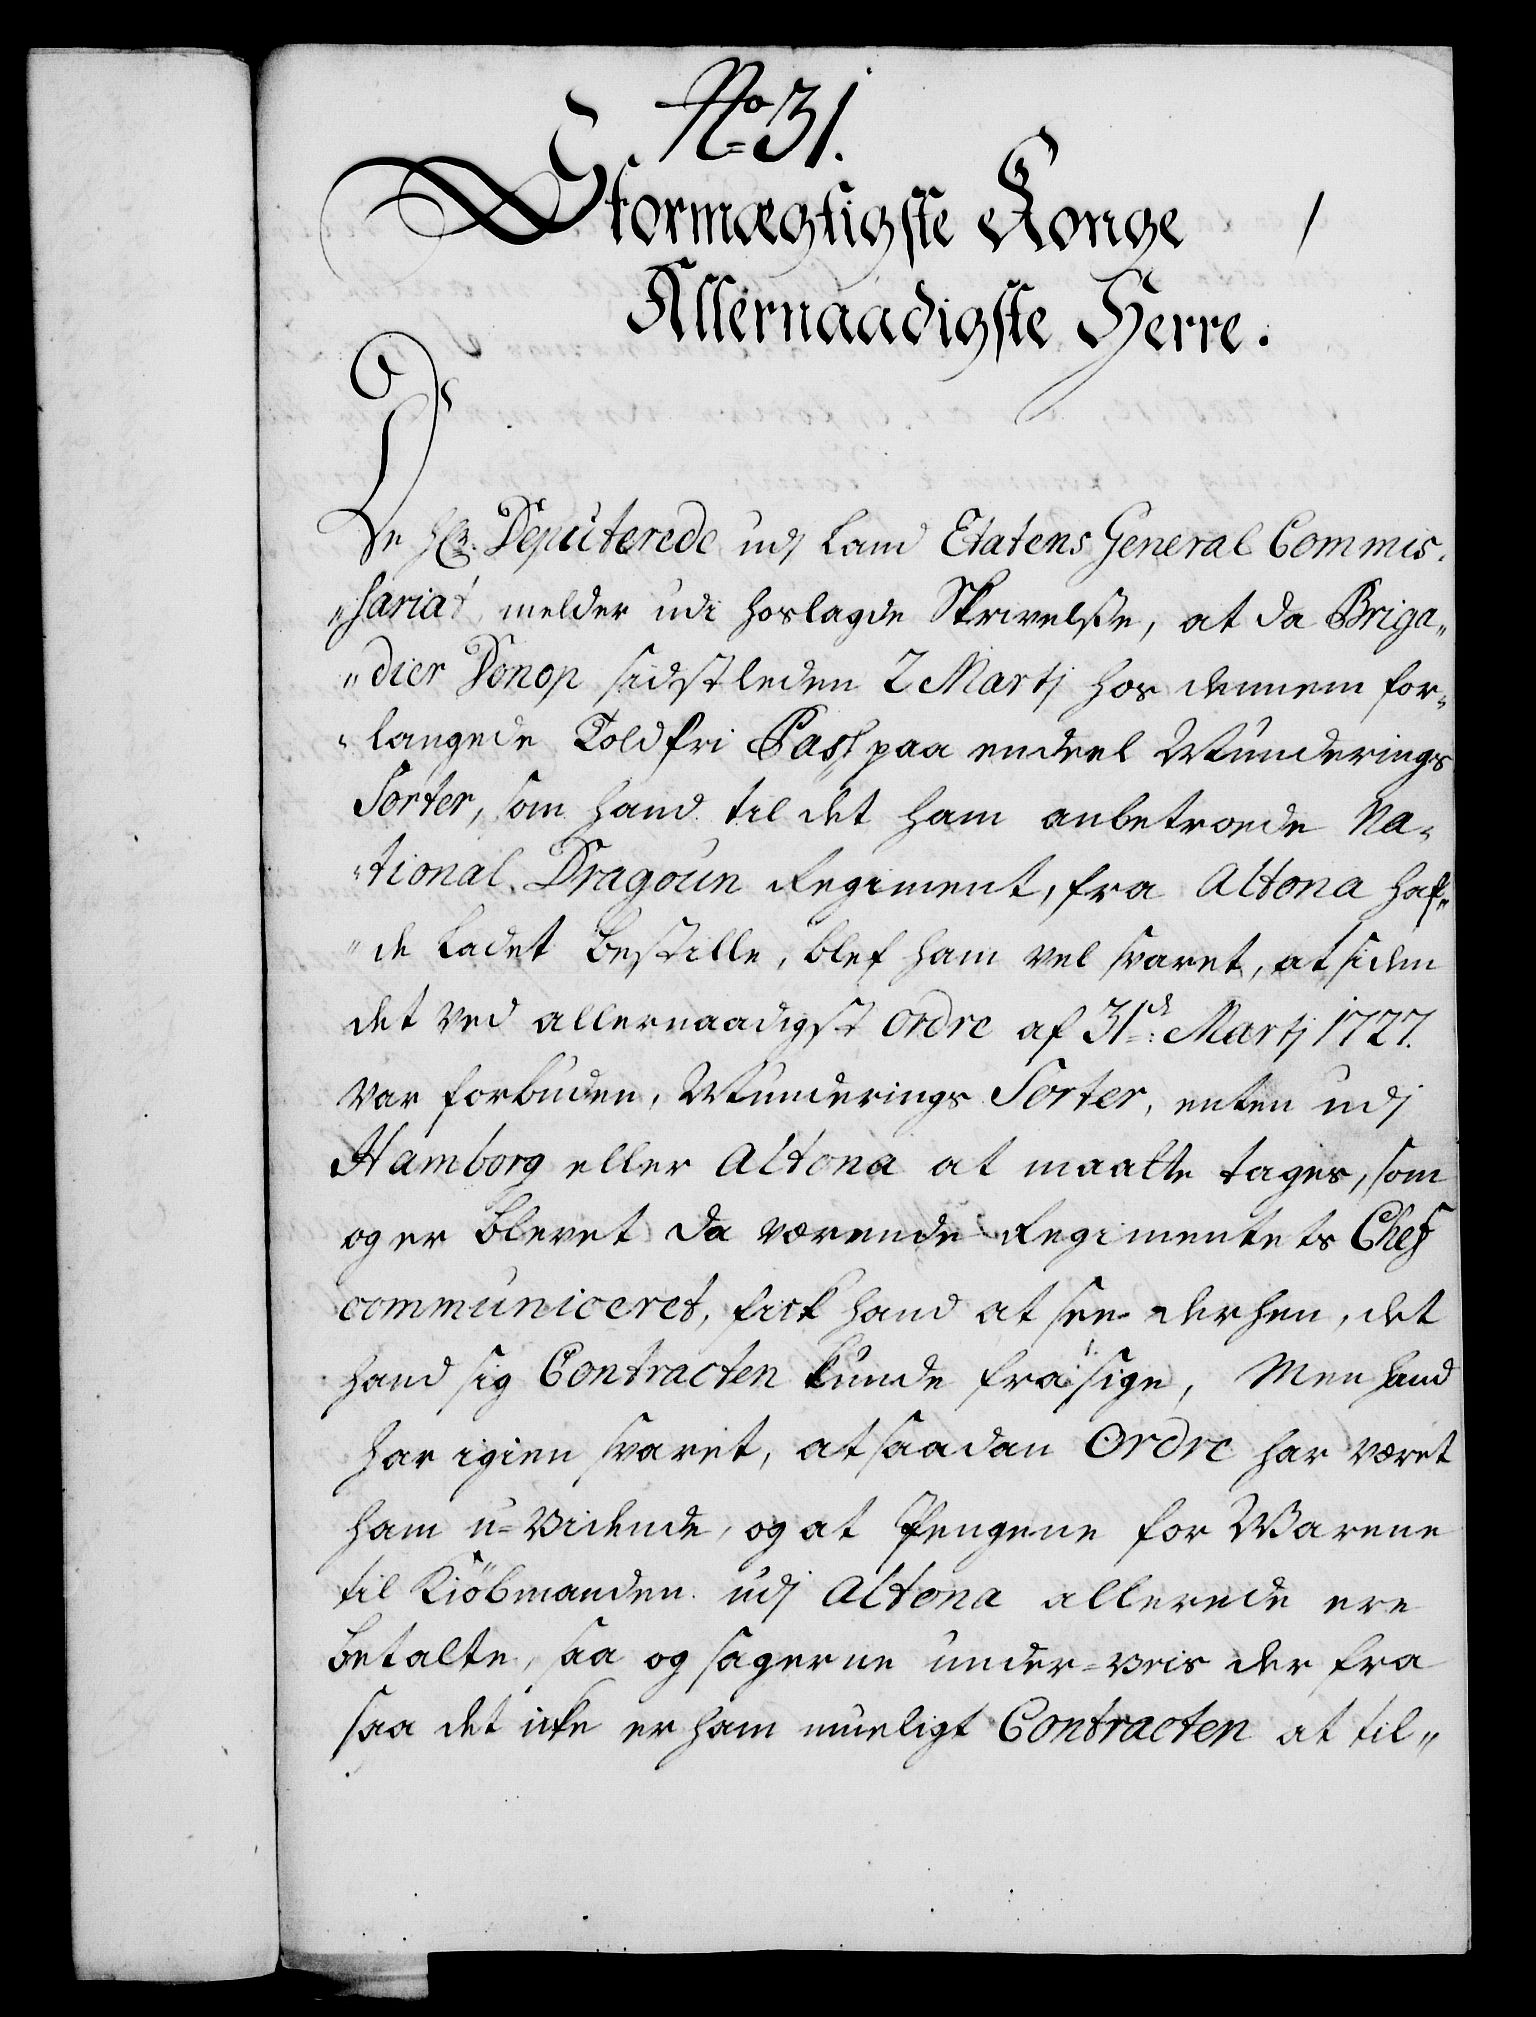 No 31.
Stormægtigste Konge
Allernaadigste Herre.
De Hr. Deputerede udj Land Etatens General Commis-
"sariat, melder udi hoslagde Skrivelse, at da Briga"
"dier Donop sidstleden 2 Martj hos dennem for-
"langede Toldfri Pass paa endeel Munderings
Sorter, som hand til det ham anbetroede Na-
"tional Dragoun Regiment, fra Altona haf"
"de ladet bestille, blef ham vel svaret, at siden
det ved allernaadigst ordre af 31de Martj 1727.
var forbuden, Munderings Sorter, enten udj
Hamborg eller Altona at maatte tages, som
og er blevet da værende Regimentets Chef
communiceret, fick hand at see derhen, det
hand sig Contracten kunde fra sige, Men hand
har igien svaret, at saadan Ordre har været
ham u-vidende, og at Pengene for Warene
til Kiöbmanden udj Altona allerede ere
betalte, saa og sagerne under-veis der fra
saa det icke er ham mueligt Contracten at til"